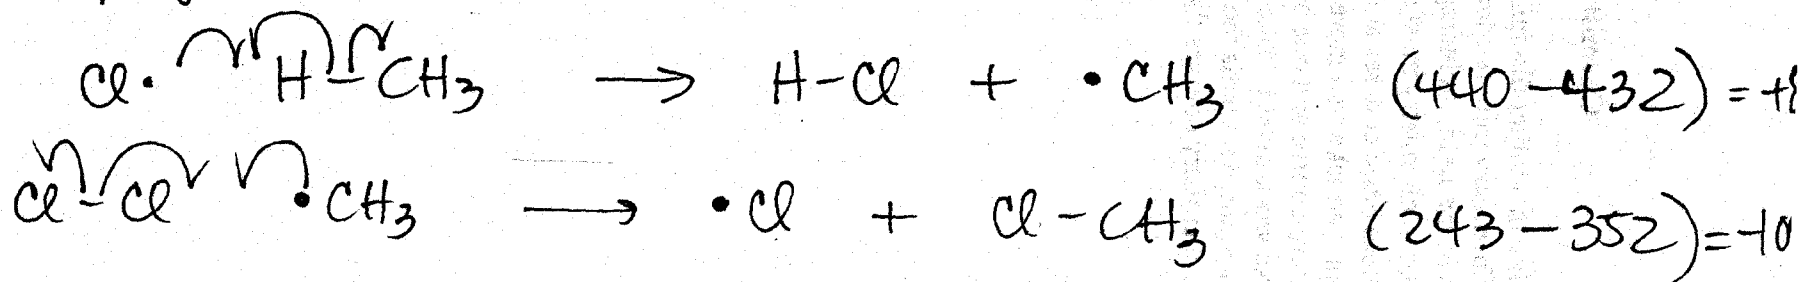 Cl· H-CH₃ → H-Cl + ·CH₃ (440-432) =
Cl-Cl ·CH₃ → ·Cl + Cl-CH₃ (243-352) = -10